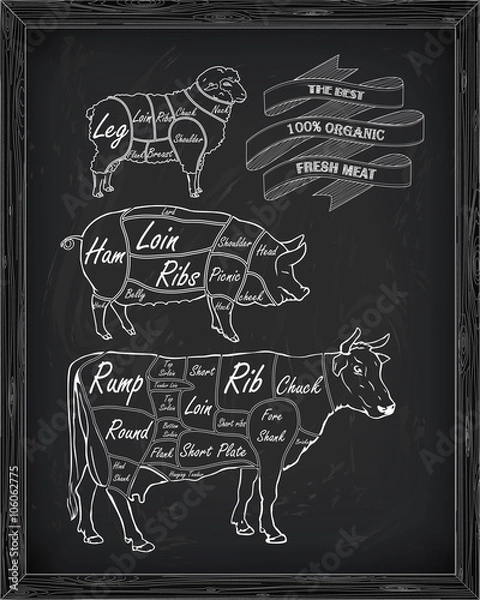 THE BEST
100% ORGANIC
FRESH MEAT
Leg
Loin
Ribs
Chuck
Neck
Shoulder
Flank
Breast
Lard
Ham
Loin
Ribs
Shoulder
Head
Picnic
cheek
Belly
Hock
Hock
Rump
Top Sirloin
Tender Loin
Short
Loin
Rib
Chuck
Top Sirloin
Round
Bottom Sirloin
Short ribs
Fore
Shank
Flank
Short Plate
Hind
Shank
Hanging Tender
Adobe Stock | #106062775
Adobe Stock